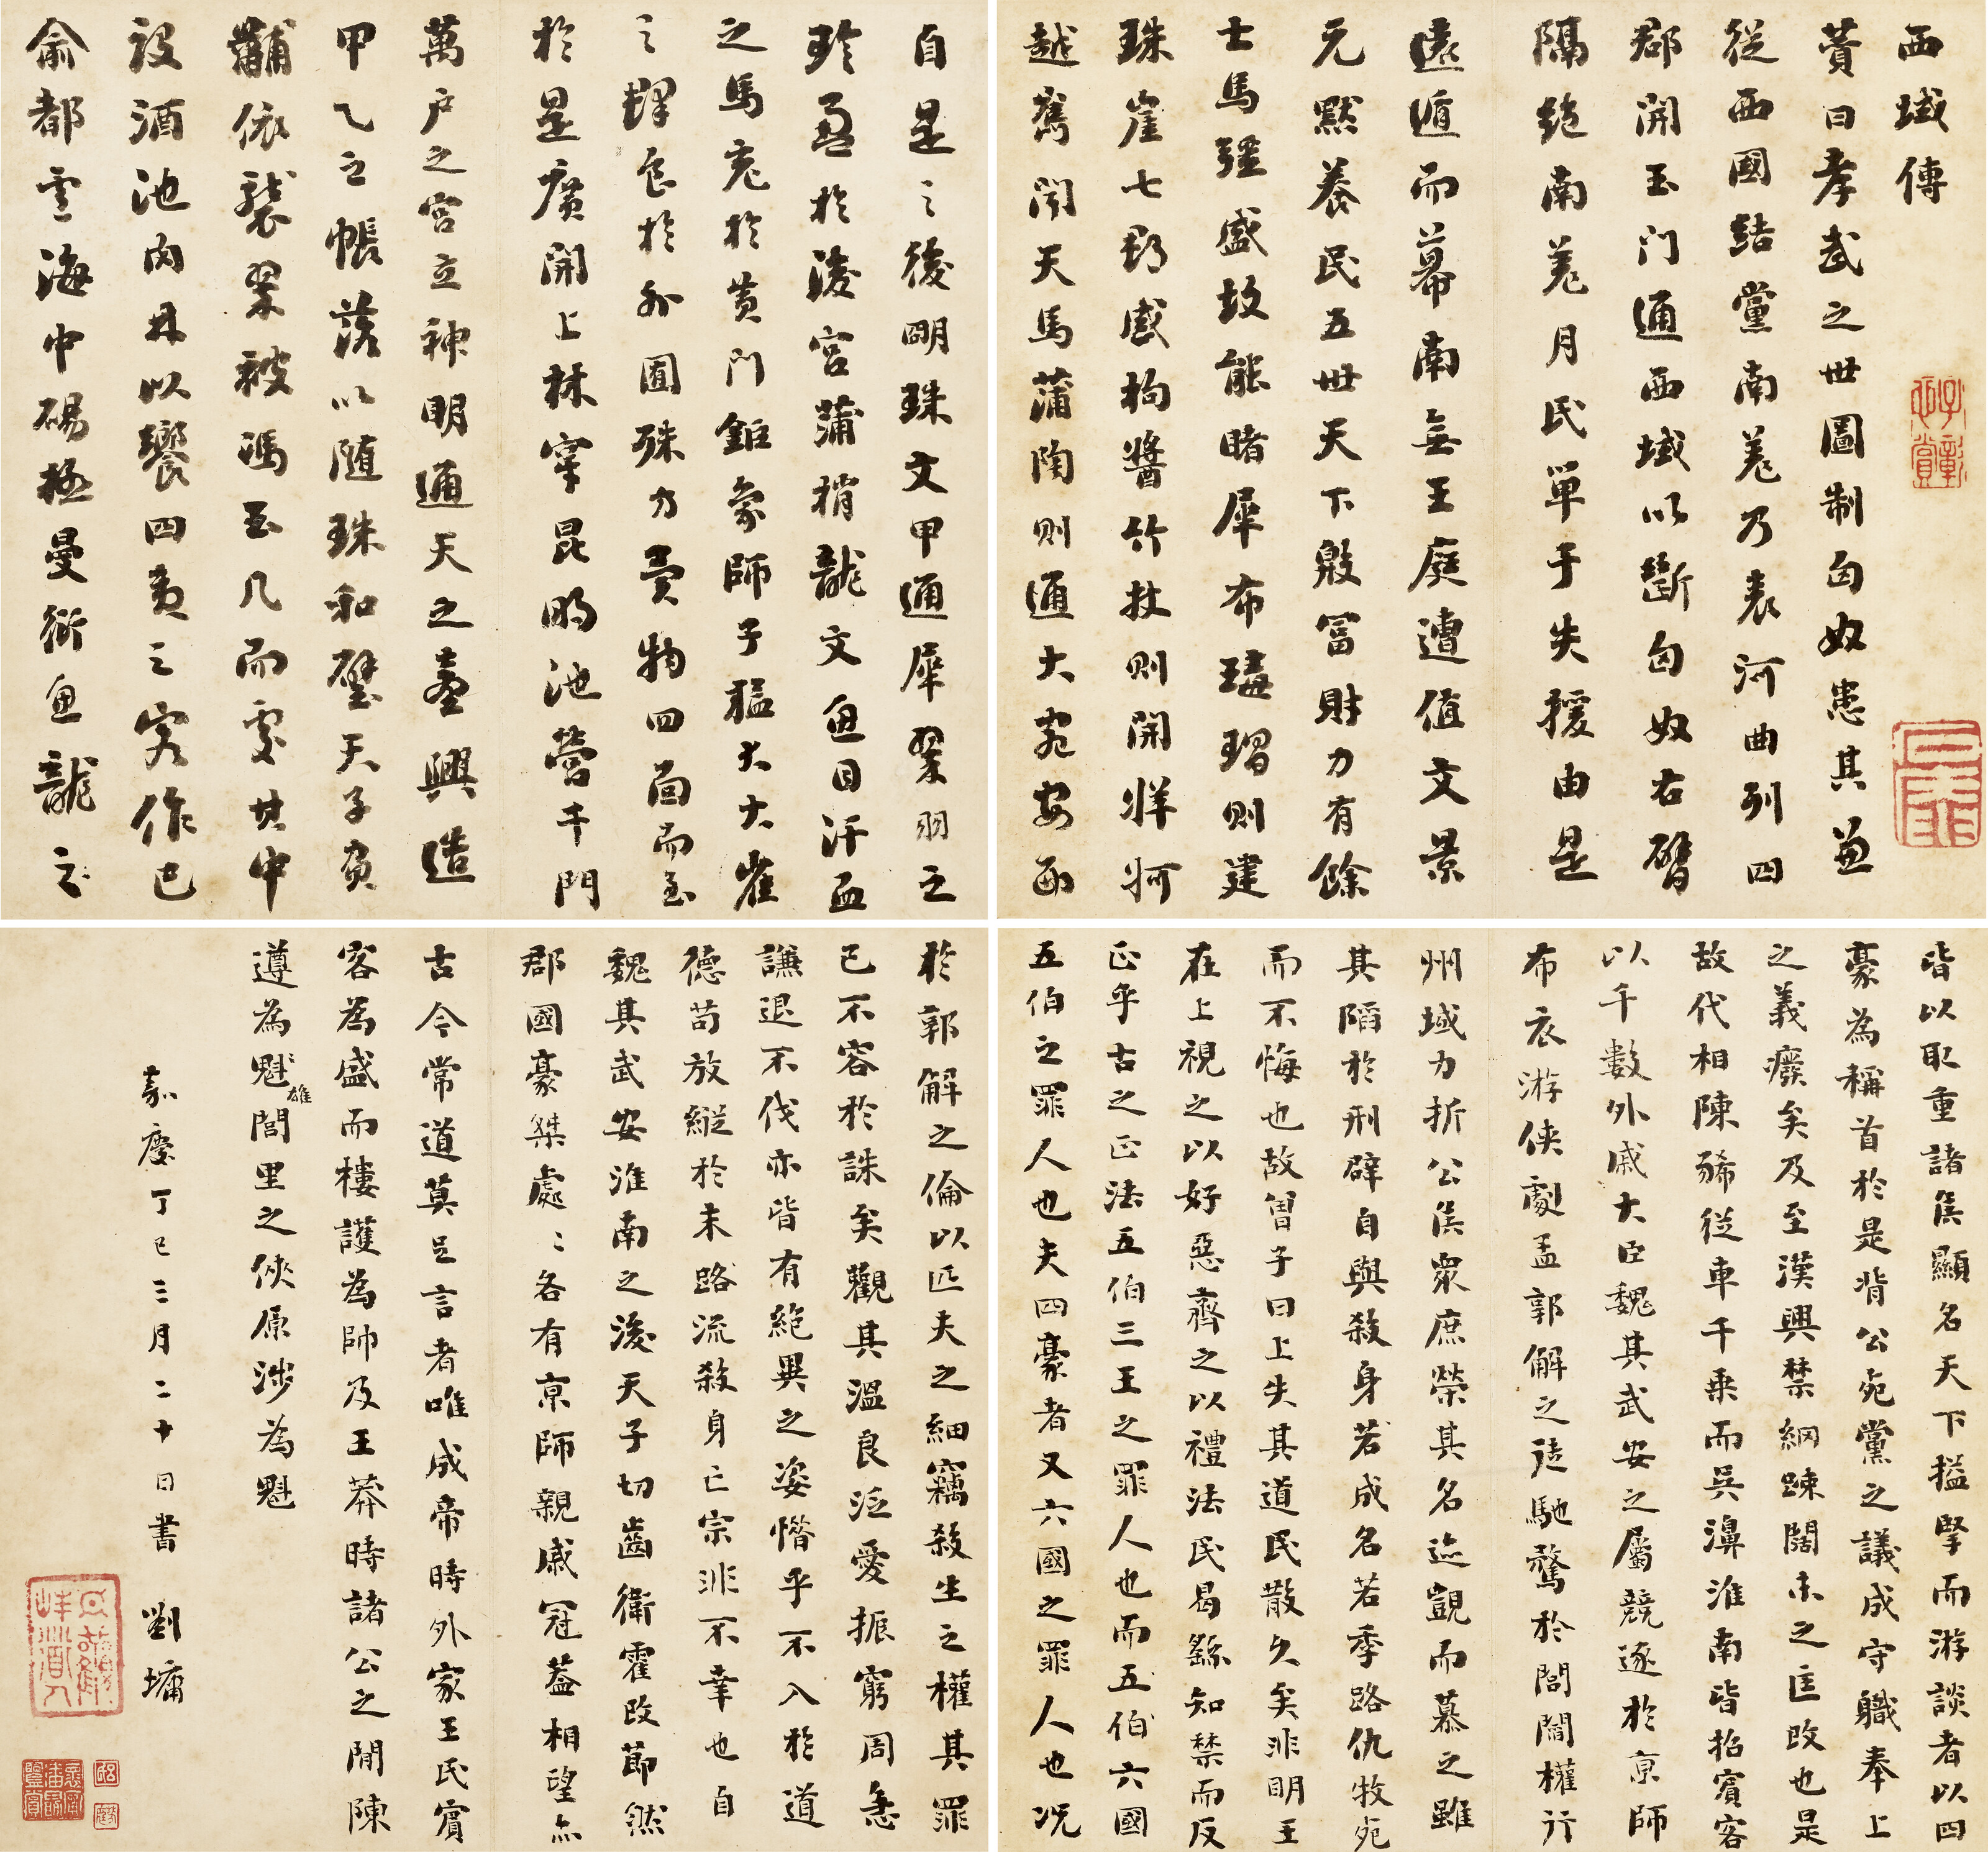 西域傳
贊曰孝武之世圖制匈奴患其兼
從西國結黨南羌乃表河曲列四
郡開玉門通西域以斷匈奴右臂
隔絕南羌月氏單于失援由是
遠遁而幕南無王庭遭值文景
元默養民五世天下殷富財力有餘
士馬彊盛故能睹犀布瑇瑁則建
珠崖七郡感枸醬竹杖則開牂牁
越嶲聞天馬蒲陶則通大宛安西
自是之後明珠文甲通犀翠羽之
珍盈於後宮蒲梢龍文魚目汗血
之馬充於黃門鉅象師子猛犬大雀
之群食於外囿殊方異物四面而至
於是廣開上林穿昆明池營千門
萬戶之宮立神明通天之臺興造
甲乙之帳落以隨珠和璧天子負
黼依襲翠被馮玉几而處其中
設酒池肉林以饗四夷之客作巴
俞都盧海中碭極曼衍魚龍之
皆以取重諸侯顯名天下搤掔而游談者以四
豪為稱首於是背公死黨之議成守職奉上
之義癈矣及至漢興禁網踈闊未之匡改也是
故代相陳豨從車千乘而吳濞淮南皆招賓客
以千數外戚大臣魏其武安之屬競逐於京師
布衣游俠劇孟郭解之徒馳騖於閭閻權行
州域力折公侯眾庶榮其名迹覬而慕之雖
其陷於刑辟自與殺身若成名若季路仇牧死
而不悔也故曾子曰上失其道民散久矣非明王
在上視之以好惡齊之以禮法民曷繇知禁而反
正乎古之正法五伯三王之罪人也而五伯六國
五伯之罪人也夫四豪者又六國之罪人也況
於郭解之倫以匹夫之細竊殺生之權其罪
已不容於誅矣觀其溫良泛愛振窮周急
謙退不伐亦皆有絕異之姿惜乎不入於道
德苟放縱於末路流殺身亡宗非不幸也自
魏其武安淮南之後天子切齒衛霍改節然
郡國豪桀處處各有京師親戚冠蓋相望亦
古今常道莫足言者唯成帝時外家王氏賓
客為盛而樓護為帥及王莽時諸公之間陳
遵為魁雄閭里之俠原涉為魁
嘉慶丁巳三月二十日書 劉墉